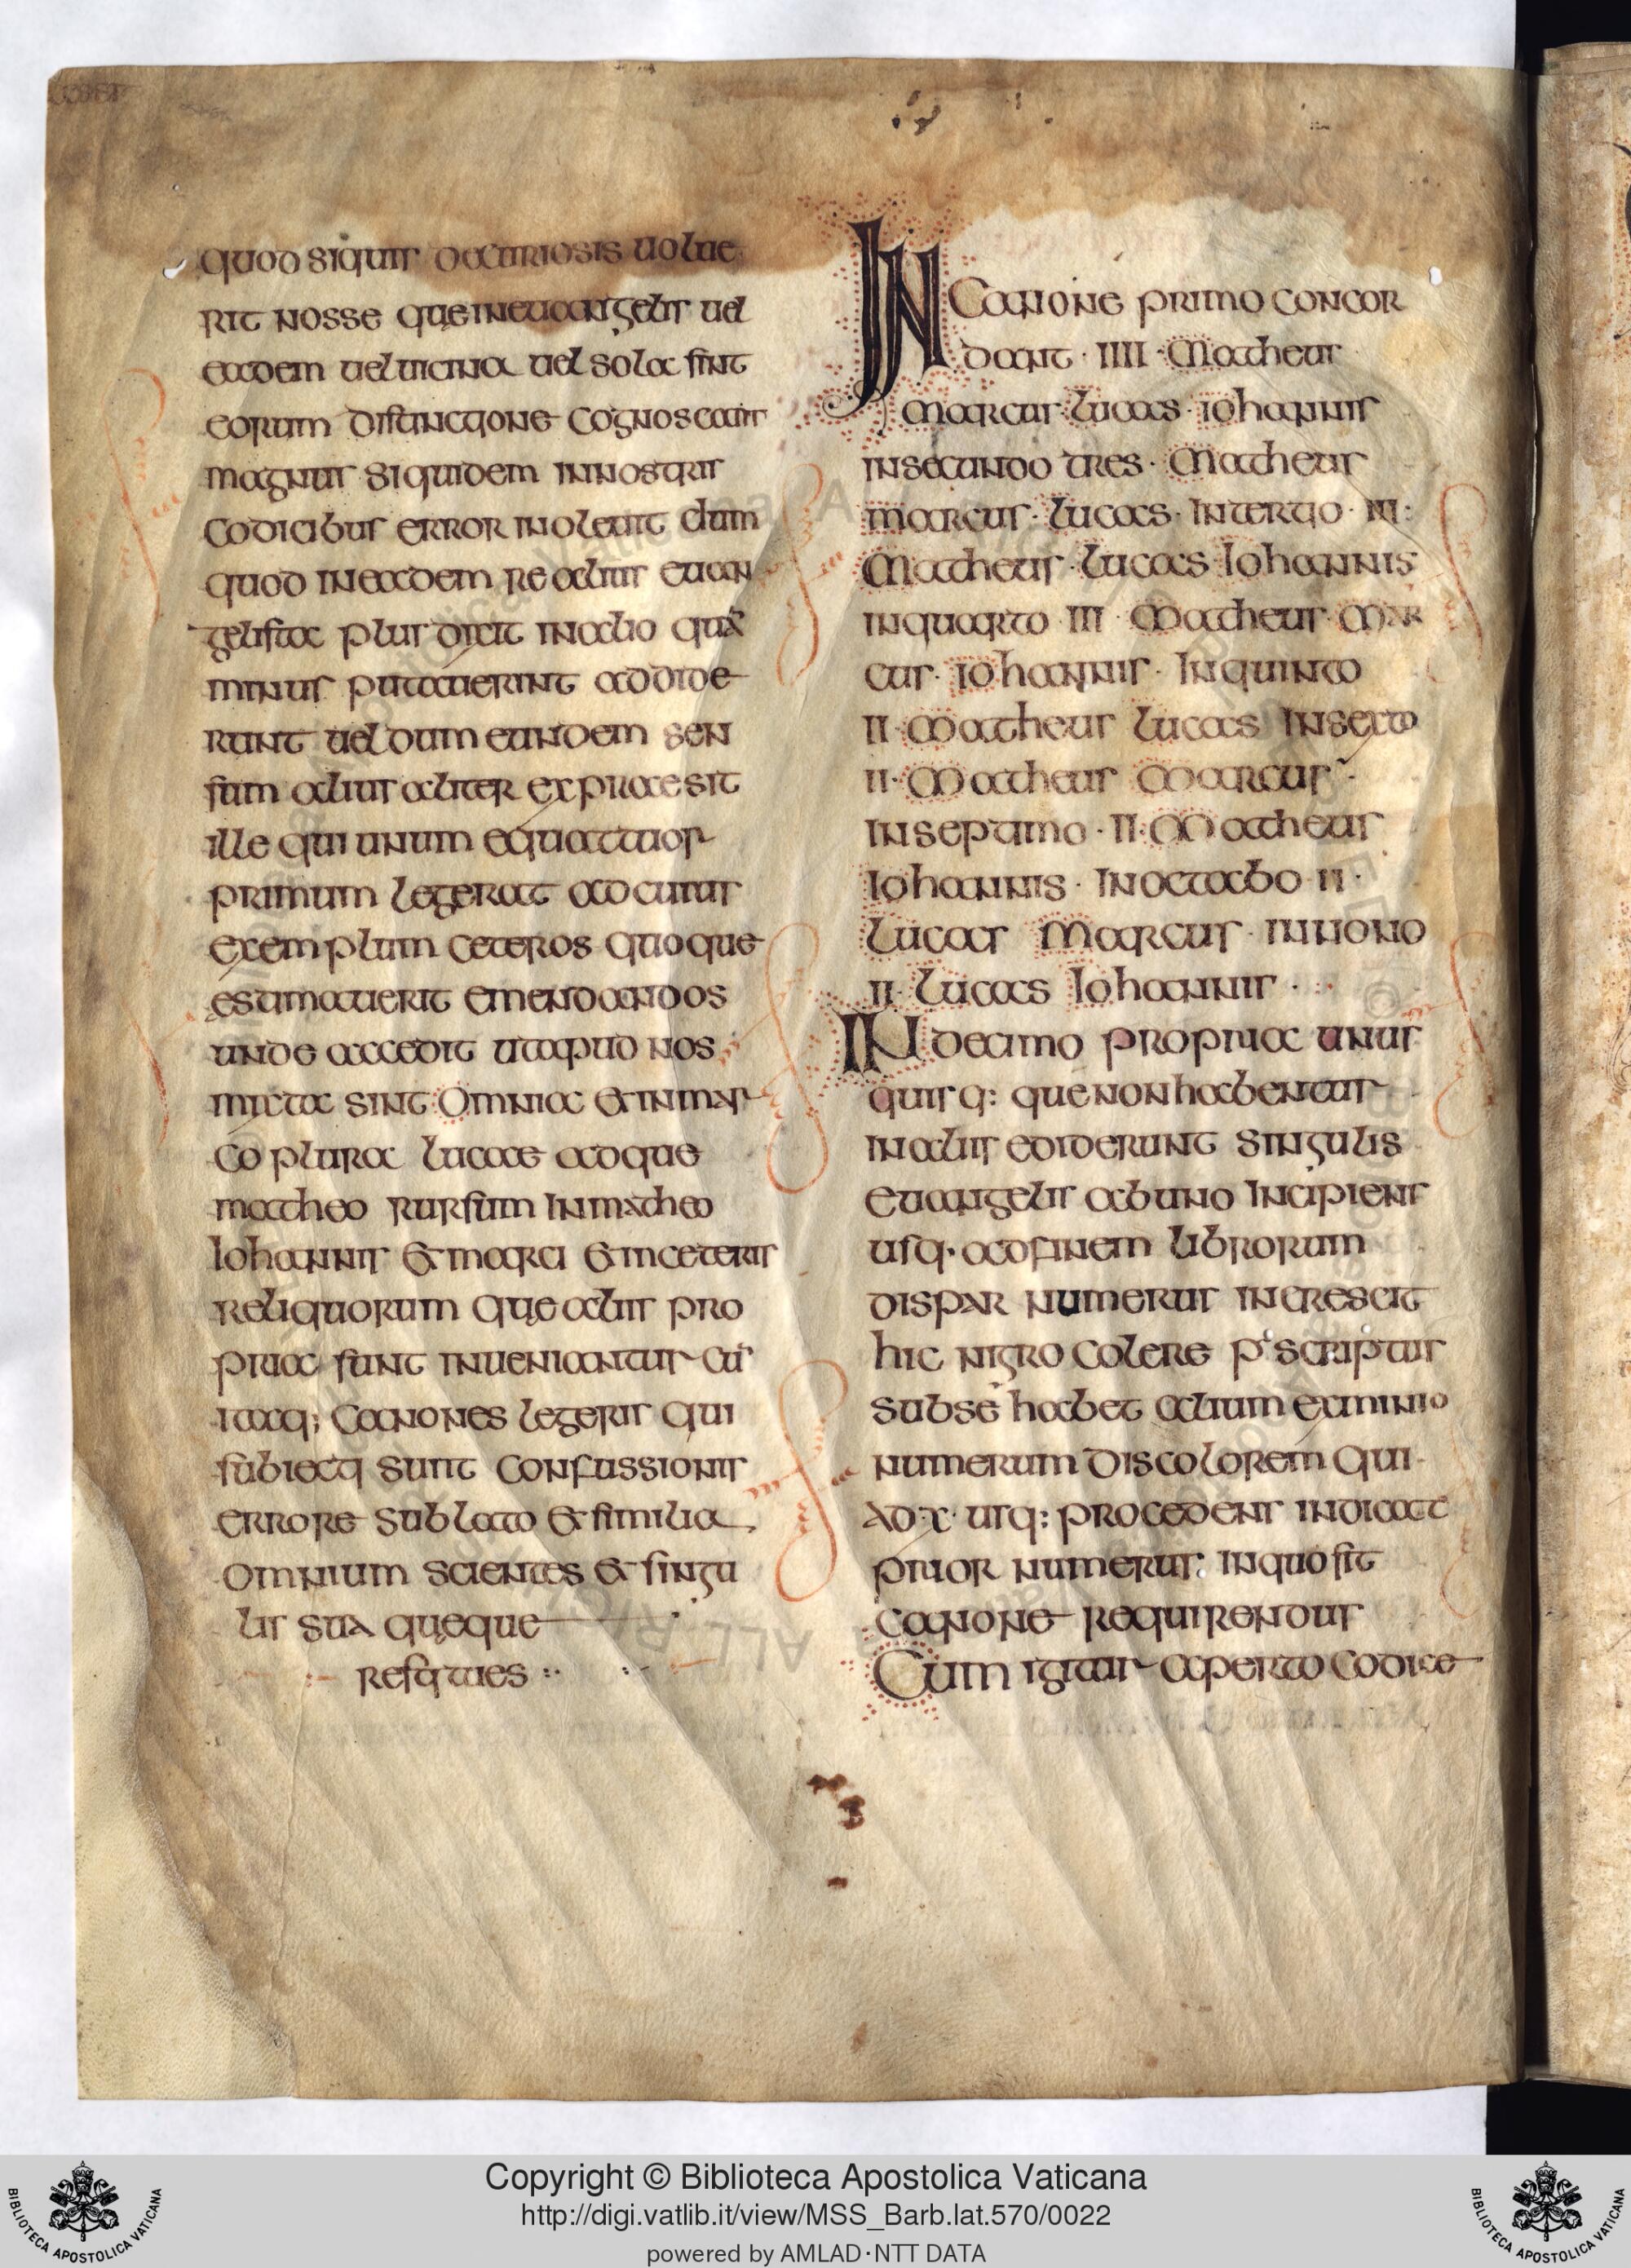 quod siquis decuriosis uolue
rit nosse que ineuangeliis uel
eadem uel uicina uel sola sint
eorum distinctione cognoscant
magnus siquidem innostris
codicibus error inoleuit dum
quod ineadem re alius euan
gelista plus dixit inalio quã
minus putauerint addide
runt uel dum eundem sen
sum alius aliter expraesit
ille qui unum equattuor
primum legerat ad cuius
exemplum ceteros quoque
estimauerit emendandos
unde accedit utapud nos
mixta sint omnia & inmar
co plura lucae adque
matheo rursum inmatheo
Iohannis & marci & inceteris
reliquorum que aliis pro
pria sunt inueniantur cũ
itaq; canones legeris qui
subiecti sunt confussionis
errore sublato & similia
omnium scientes & singu
lis sua queque
restities
IN Canone primo concor
dant · IIII · Matheus
marcus · lucas · iohannis
insecundo tres · Matheus
marcus · lucas · Intertio · III :
Matheus · lucas · Iohannis
inquarto · III · Matheus · Mar
cus · iohannis · Inquinto
II · Matheus lucas Insexto
II · Matheus Marcus
inseptimo · II · Matheus
Iohannis · Inoctabo · II ·
lucas Marcus · innono
II · lucas Iohannis ·
IN decimo propria unus
quisq: que non habentur
inaliis ediderunt singulis
euangeliis ab uno Incipiens
usq· adfinem librorum
dispar numerus increscit
hic nigro colere p'scriptus
subse habet alium exminio
numerum discolorem qui
ad · x · usq: procedens indicat
prior numerus: inquo sit
canone requirendus
Cum igitur aperto codice
Copyright © Biblioteca Apostolica Vaticana
http://digi.vatlib.it/view/MSS_Barb.lat.570/0022
powered by AMLAD·NTT DATA
BIBLIOTECA APOSTOLICA VATICANA
BIBLIOTECA APOSTOLICA VATICANA